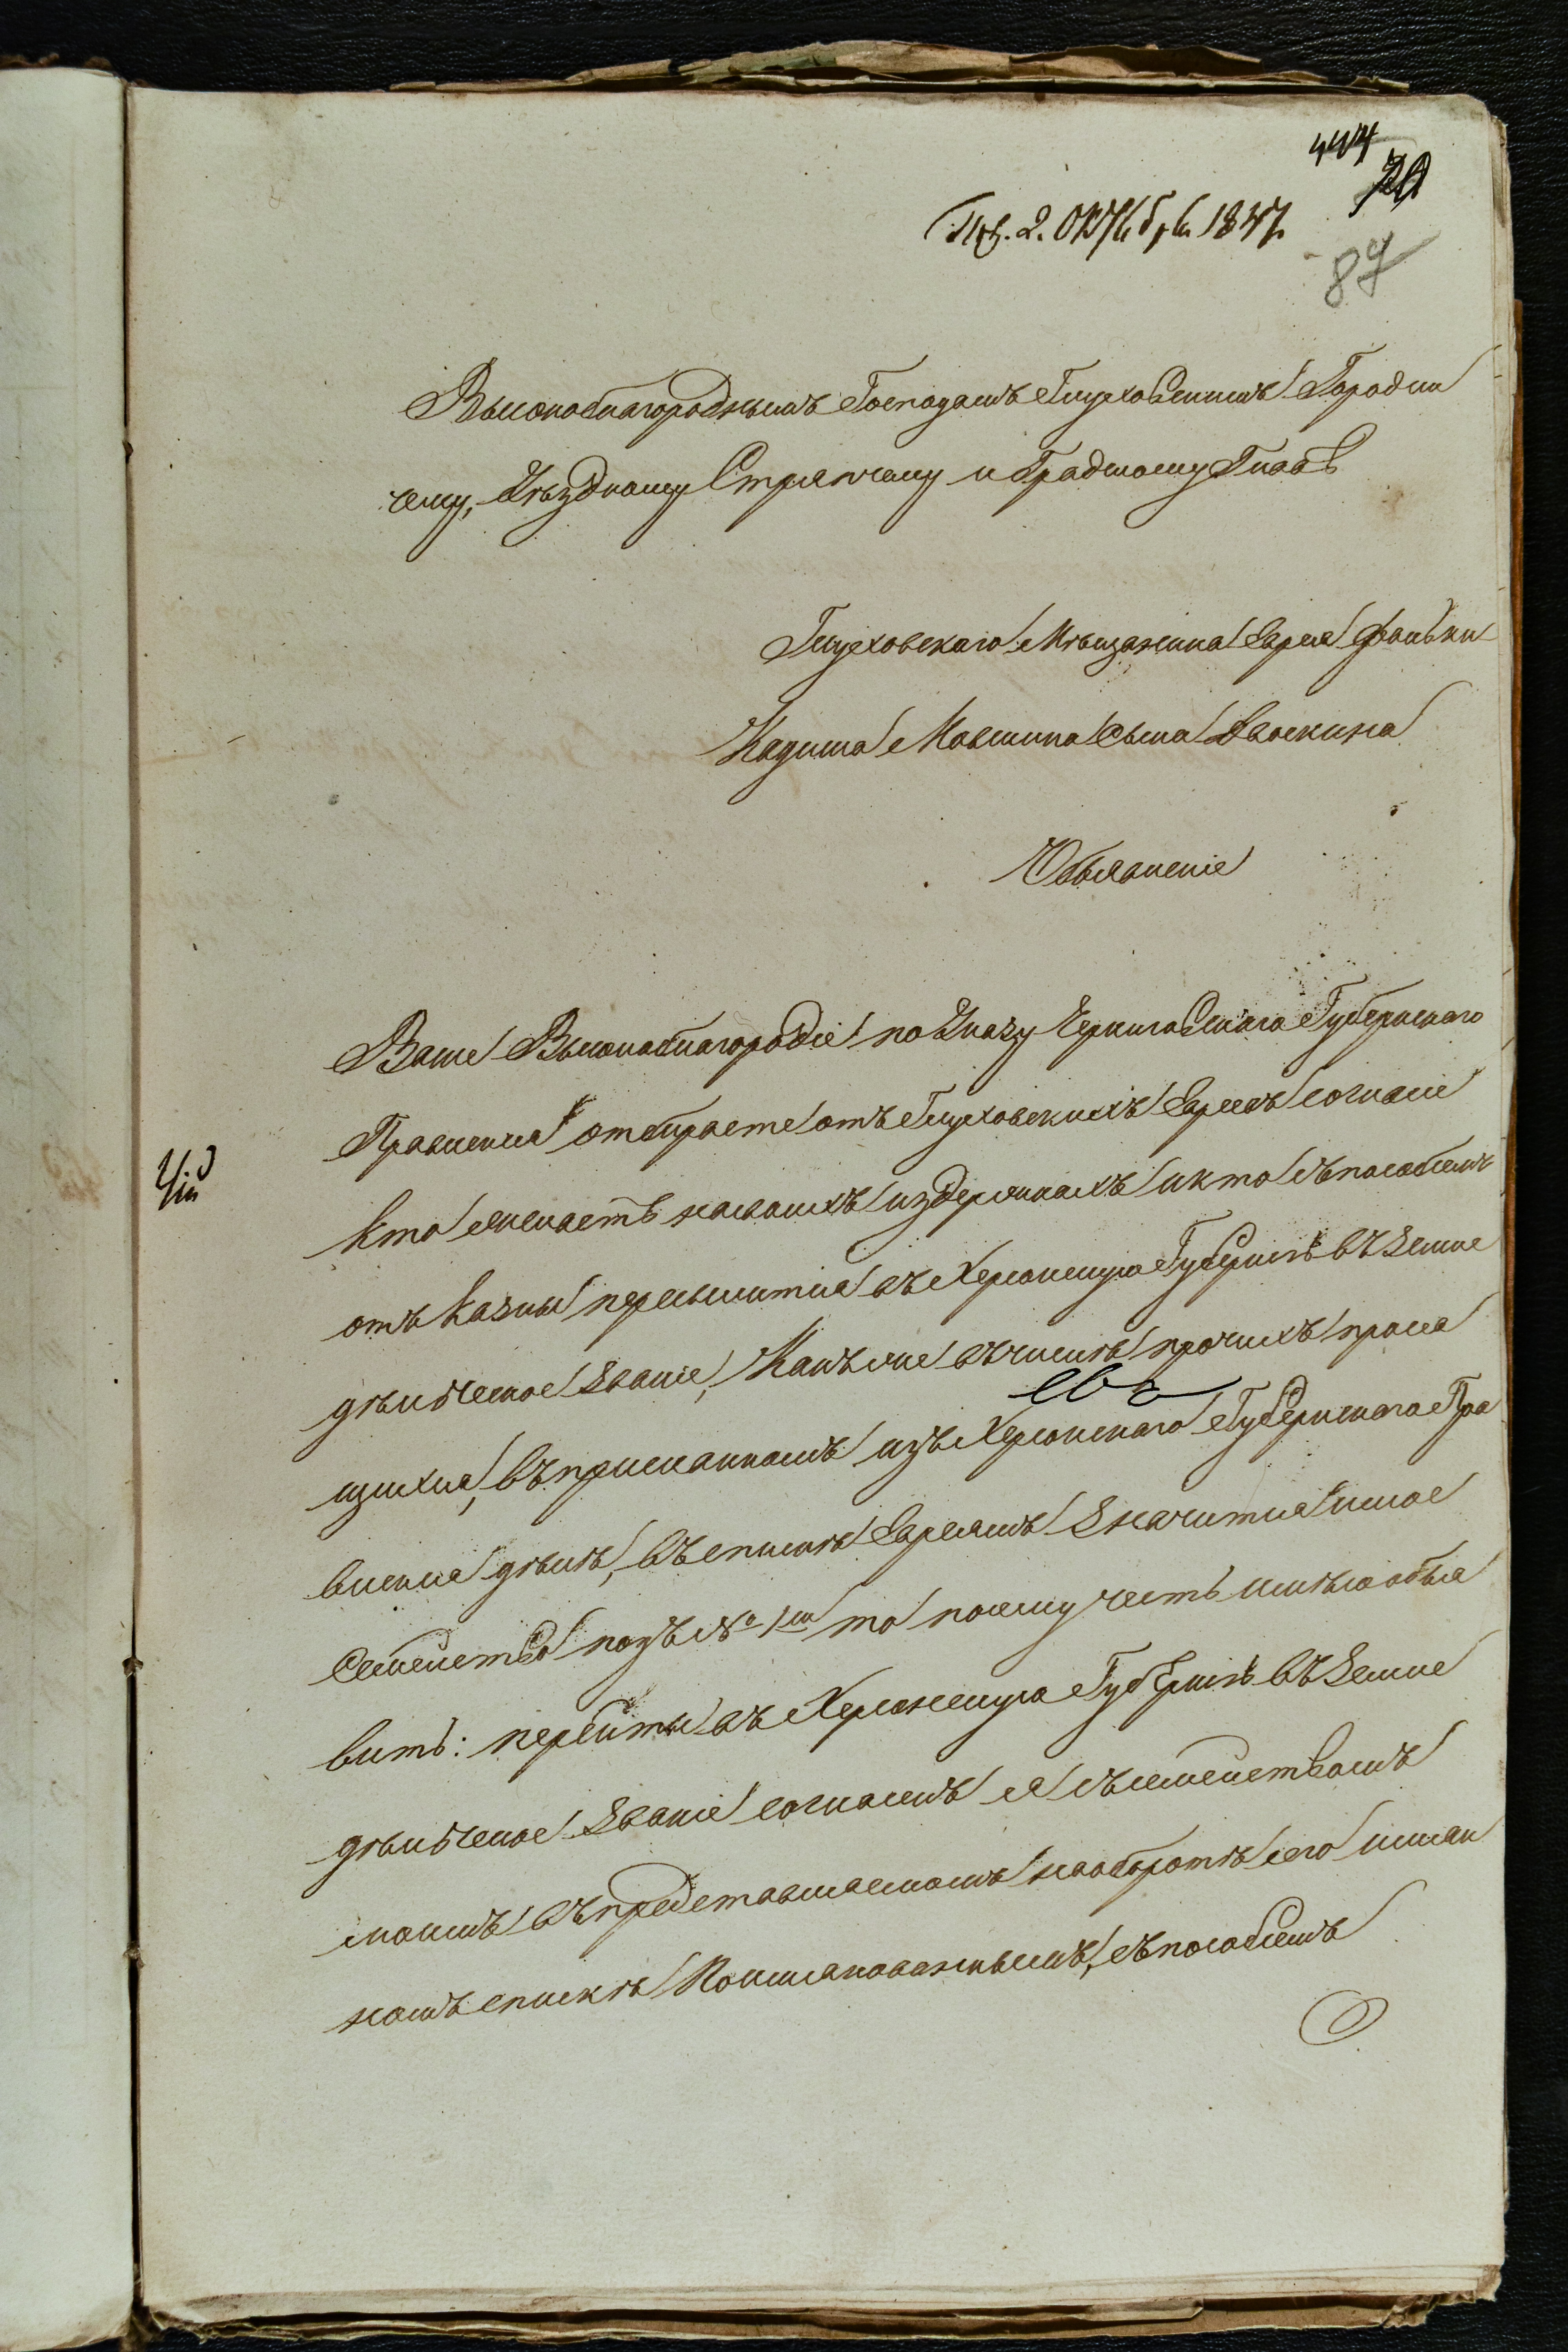 444
70
Пол. 2. Октября 1847.
87
Высокоблагороднымъ Господамъ Глуховскимъ Городни
чему, Уѣздному Стряпчему и Градскому Главѣ
Глуховскаго Мѣщанина Еврея
Кадиша Мовшина сына Двоскина
Объявленіе
Ваше Высокоблагородіе по Указу Черниговскаго Губернскаго
Правленія отбираете отъ Глуховскихъ Евреевъ согласіе
кто желаетъ на своихъ издержкахъ и кто съ пособіемъ
отъ казны переселится въ Херсонскую Губернію въ Земле
дѣльческое Званіе, Какъ же въ числѣ прочихъ прося
щихся, въ присланномъ изъ Херсонскаго Губернскаго Пра
вленія дѣлѣ, въ спискѣ Евреямъ Значится и мое
семейство подъ № 1м то посему честь имѣю объя
вить: перейти въ Херсонскую Губернію въ Земле
дѣльческое Званіе согласенъ я съ семействомъ
моимъ въ представляемомъ на оборотѣ сего имян
номъ спискѣ поименованнымъ, съ пособіемъ